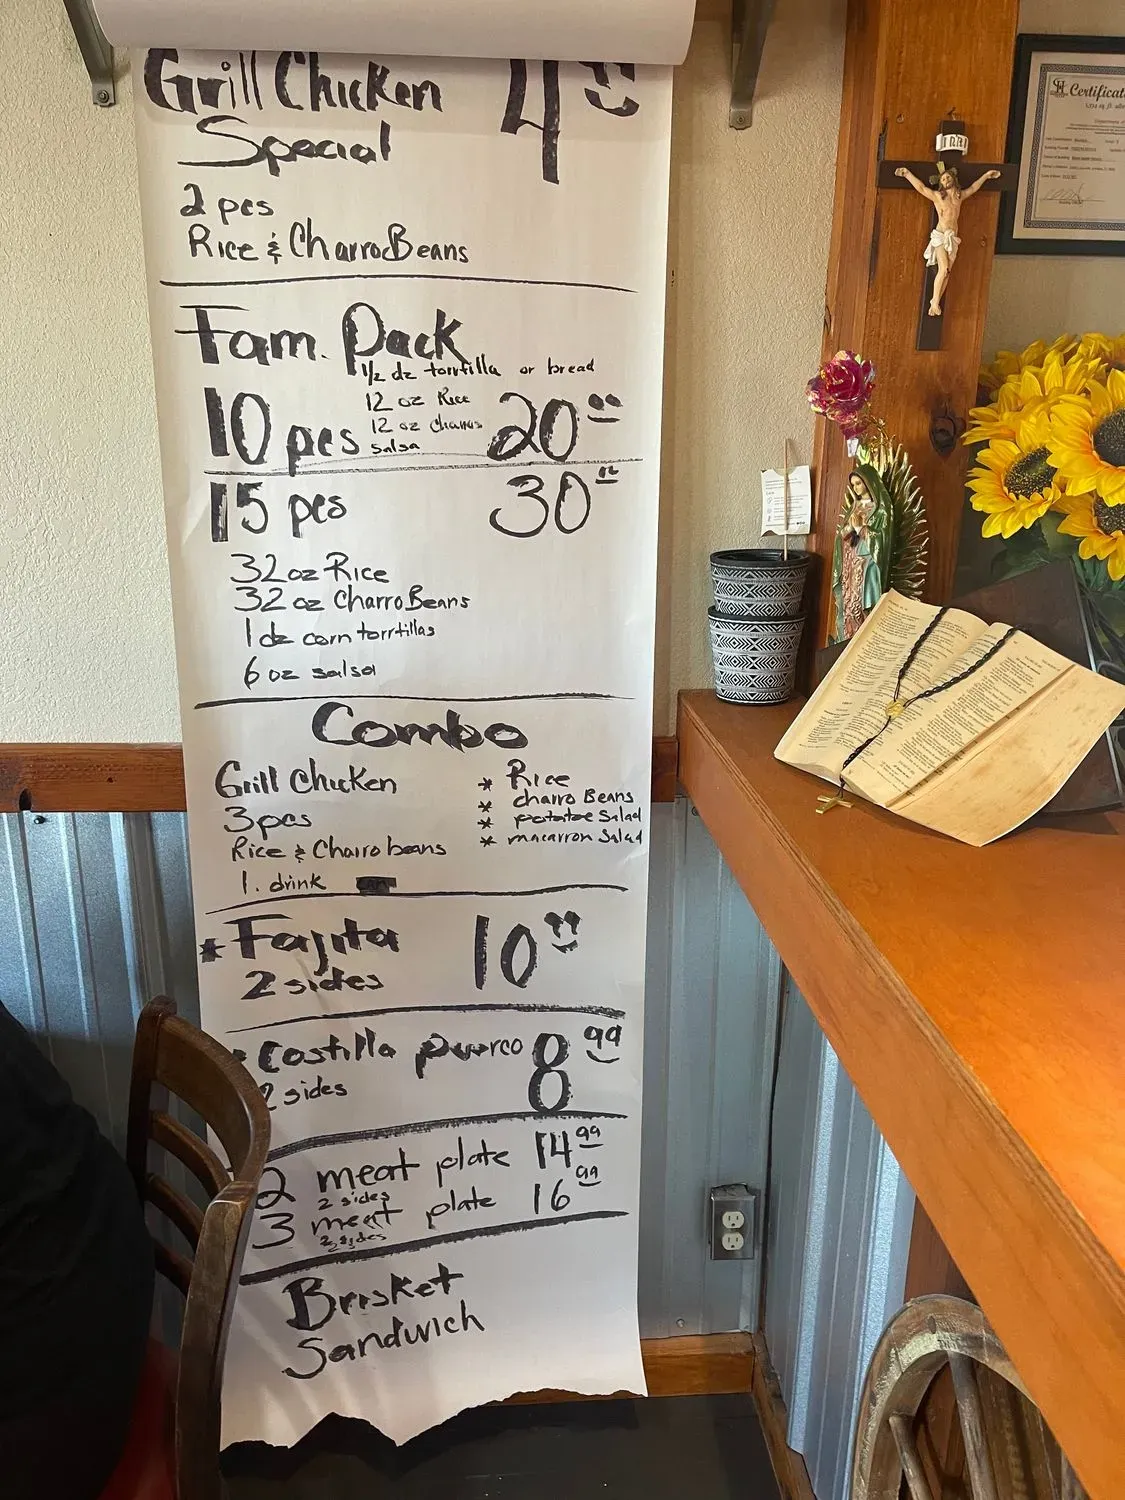 Grill Chicken 4
Special
2 pcs
Rice & Charro Beans
Fam. Pack
1/2 dz torrtilla or bread
12 oz Rice
10 pcs 20.00
12 oz Charros
salsa
15 pcs 30
32 oz Rice
32 oz Charro Beans
1 dz corn torrtillas
6 oz salsa
Combo
Grill Chicken
3 pcs
Rice & Charro beans
1. drink
* Rice
* charro Beans
* potatoe Salad
* macarron Salad
* Fajita 10
2 sides
Costilla puerco 8 99
2 sides
8
2 meat plate 14 99
2 sides
3 meat plate 16 99
2 sides
Brisket
Sandwich
INRI
Certificat